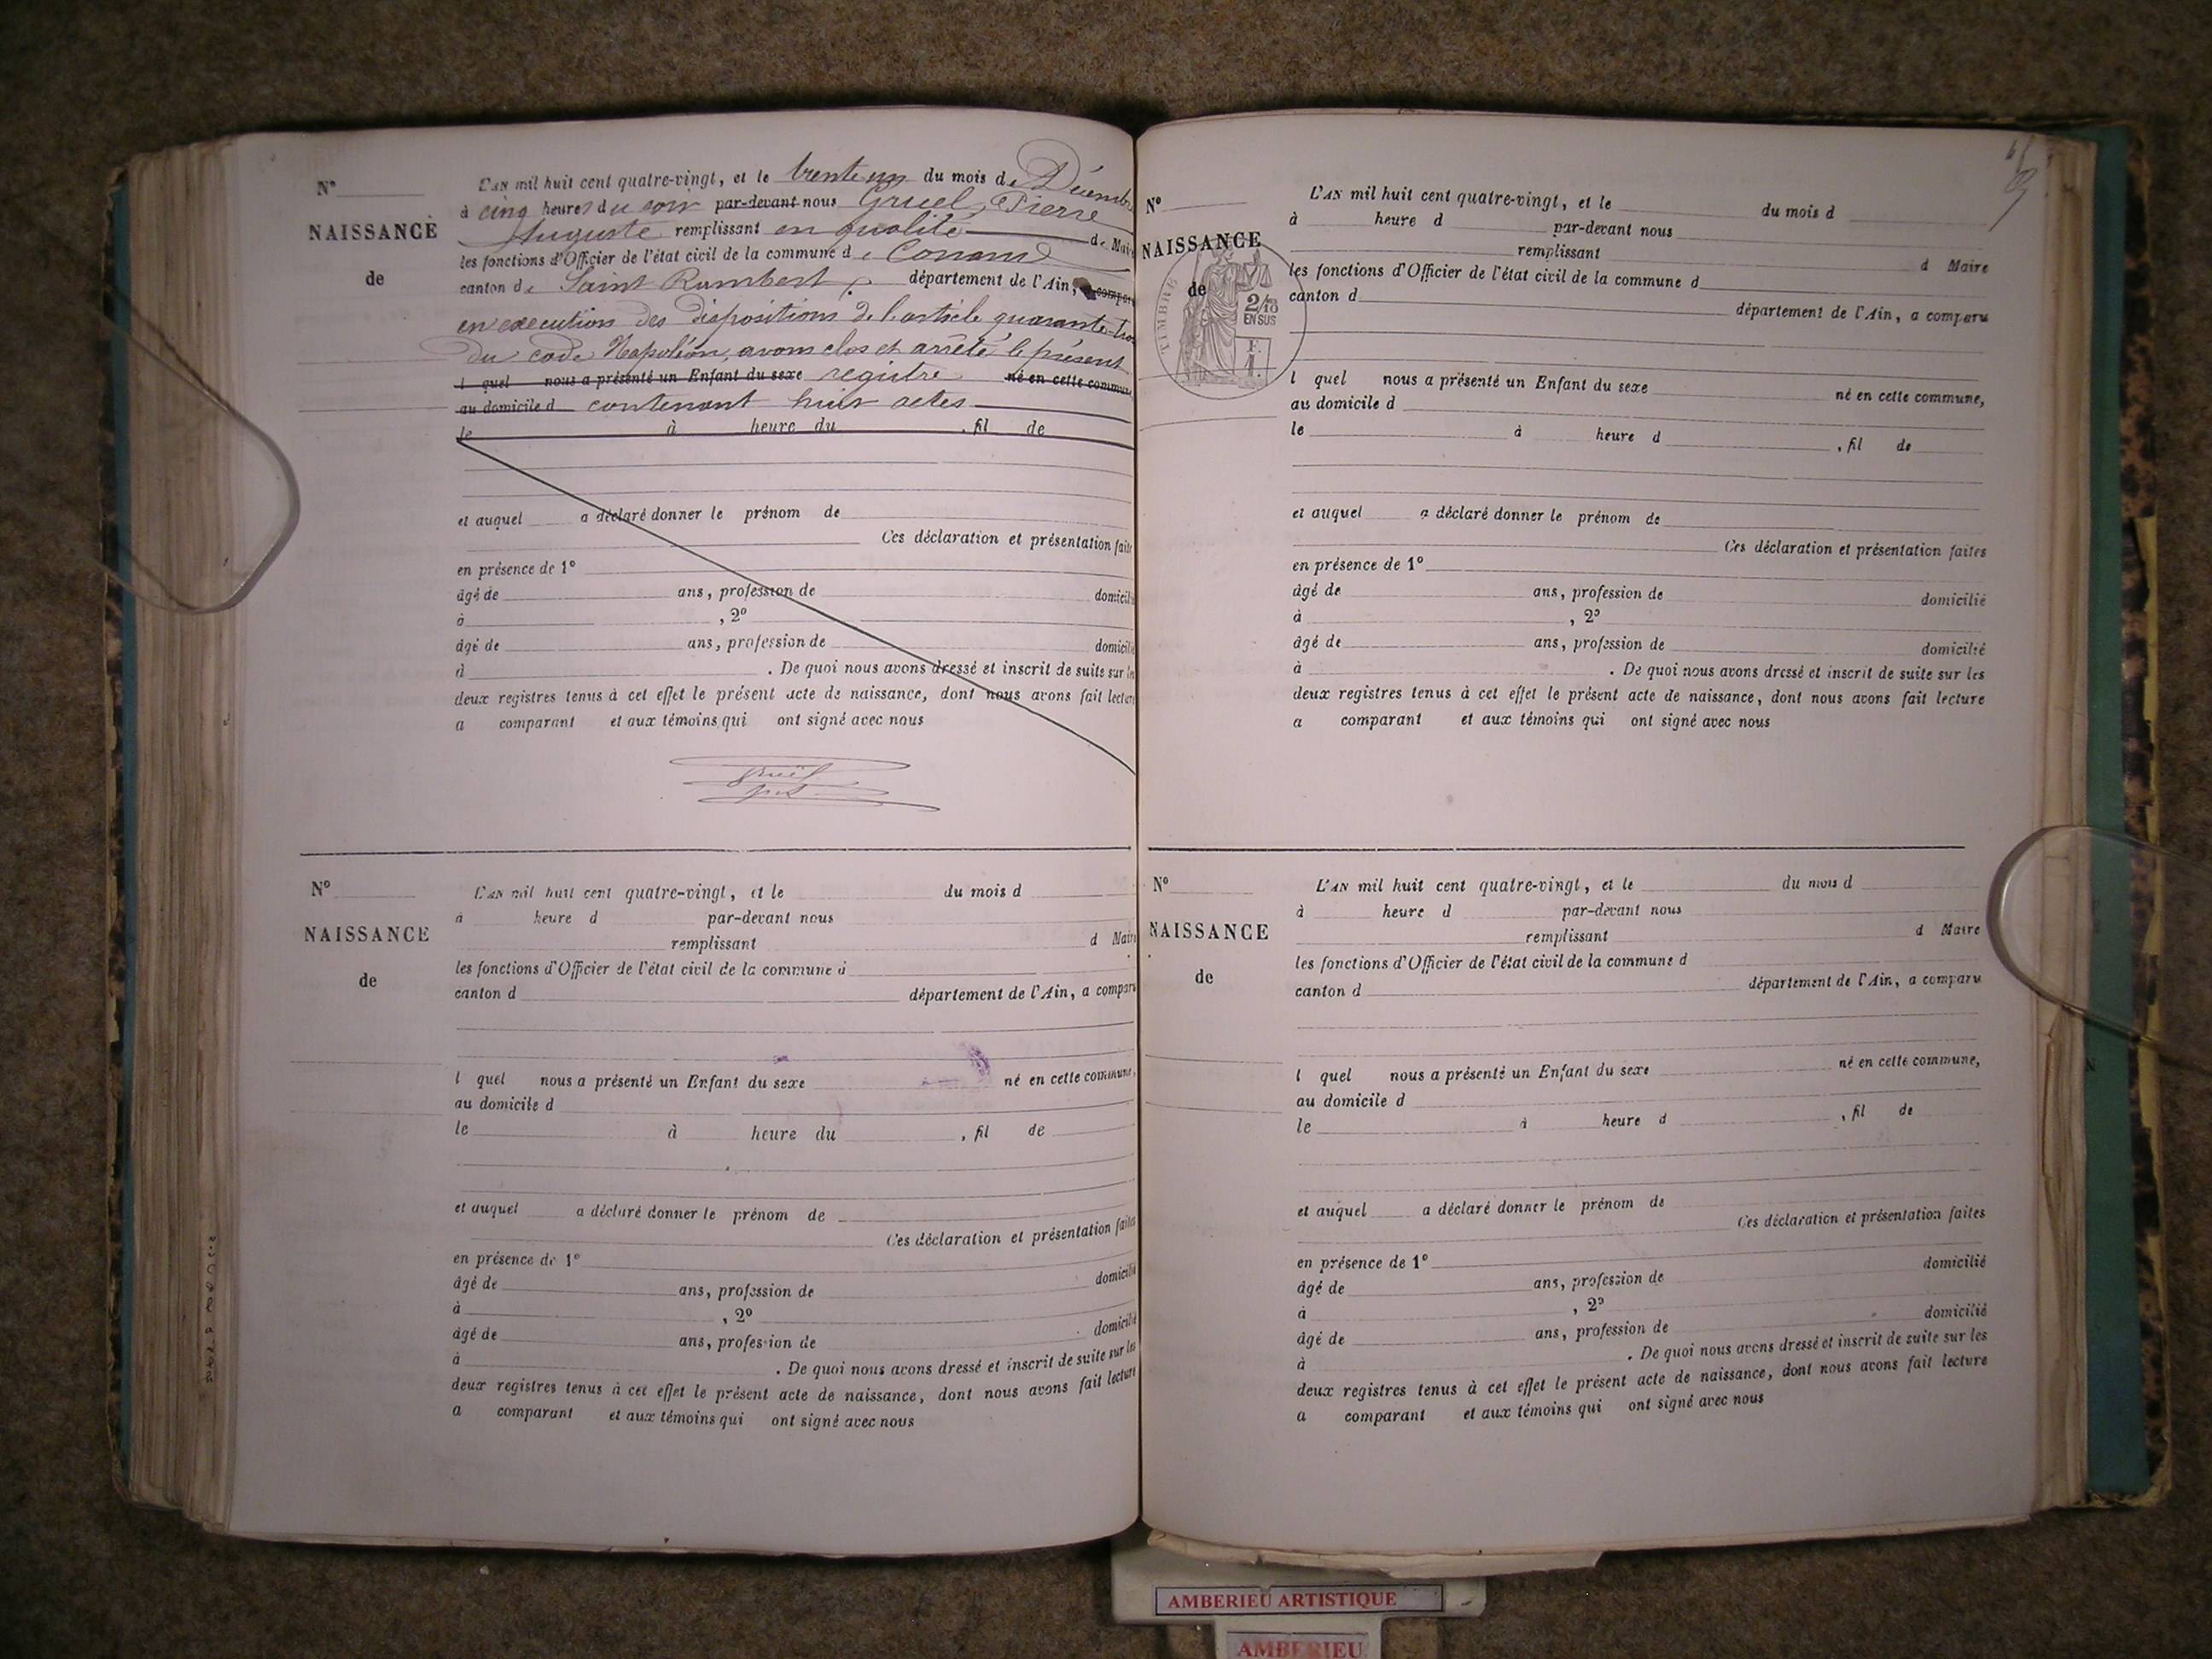 N°
NAISSANCE
de
L'AN mil huit cent quatre-vingt, et le trente un du mois de Décembre
à cinq heures du soir par-devant nous Gruel, Pierre
Auguste remplissant en qualité de Maire
les fonctions d'Officier de l'état civil de la commune de Conand
canton de Saint Rambert, département de l'Ain, a comparu
en execution des dispositions de l'article quarante-trois
du code Napoléon, avons clos et arrêté le présent
l quel nous a présenté un Enfant du sexe registre né en cette commune,
au domicile d contenant huit actes
le à heure du , fil de
et auquel a déclaré donner le prénom de
Ces déclaration et présentation faites
en présence de 1°
âgé de ans, profession de domicilié
à , 2°
âgé de ans, profession de domicilié
à . De quoi nous avons dressé et inscrit de suite sur les
deux registres tenus à cet effet le présent acte de naissance, dont nous avons fait lecture
a comparant et aux témoins qui ont signé avec nous
Gruel
N°
NAISSANCE
de
L'AN mil huit cent quatre-vingt, et le du mois d
à heure d par-devant nous
remplissant d Maire
les fonctions d'Officier de l'état civil de la commune d
canton d département de l'Ain, a comparu
l quel nous a présenté un Enfant du sexe né en cette commune,
au domicile d
le à heure du , fil de
et auquel a déclaré donner le prénom de
Ces déclaration et présentation faites
en présence de 1°
âgé de ans, profession de domicilié
à , 2°
âgé de ans, profession de domicilié
à . De quoi nous avons dressé et inscrit de suite sur les
deux registres tenus à cet effet le présent acte de naissance, dont nous avons fait lecture
a comparant et aux témoins qui ont signé avec nous
N°
NAISSANCE
de
TIMBRE
2/10
EN SUS
F.
1.
L'AN mil huit cent quatre-vingt, et le du mois d
à heure d par-devant nous
remplissant d Maire
les fonctions d'Officier de l'état civil de la commune d
canton d département de l'Ain, a comparu
l quel nous a présenté un Enfant du sexe né en cette commune,
au domicile d
le à heure d , fil de
et auquel a déclaré donner le prénom de
Ces déclaration et présentation faites
en présence de 1°
âgé de ans, profession de domicilié
à , 2°
âgé de ans, profession de domicilié
à . De quoi nous avons dressé et inscrit de suite sur les
deux registres tenus à cet effet le présent acte de naissance, dont nous avons fait lecture
a comparant et aux témoins qui ont signé avec nous
N°
NAISSANCE
de
L'AN mil huit cent quatre-vingt, et le du mois d
à heure d par-devant nous
remplissant d Maire
les fonctions d'Officier de l'état civil de la commune d
canton d département de l'Ain, a comparu
l quel nous a présenté un Enfant du sexe né en cette commune,
au domicile d
le à heure d , fil de
et auquel a déclaré donner le prénom de
Ces déclaration et présentation faites
en présence de 1°
âgé de ans, profession de domicilié
à , 2°
âgé de ans, profession de domicilié
à . De quoi nous avons dressé et inscrit de suite sur les
deux registres tenus à cet effet le présent acte de naissance, dont nous avons fait lecture
a comparant et aux témoins qui ont signé avec nous
AMBERIEU ARTISTIQUE
AMBERIEU